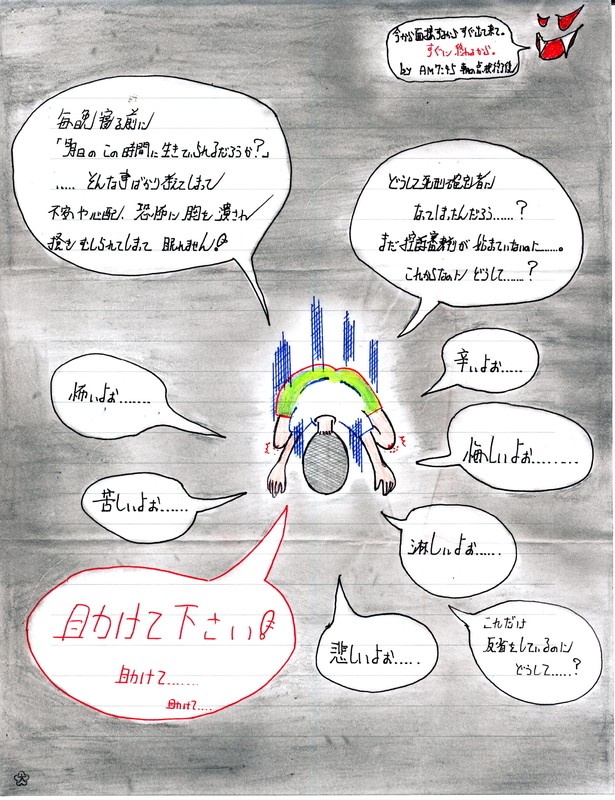 今から面接するから すぐ出て来て。
すぐに 終わるから。
by AM7:45 朝の点検
毎晩 寝る前に
「明日の この時間に 生きていられるだろうか？」
..... そんな事ばかり考えてしまって
不安や心配、恐怖に 胸を 潰され
掻き むしられてしまって 眠れません!!
どうして死刑確定者に
なってしまったんだろう......？
まだ 控訴審裁判が 始まっていないのに......。
これからなのに どうして......？
怖いよぉ........
辛いよぉ.....
悔しいよぉ.........
苦しいよぉ......
淋しいよぉ......
助けて下さい!!
助けて.......
助けて....
悲しいよぉ.....
これだけ
反省をしているのに
どうして.....？